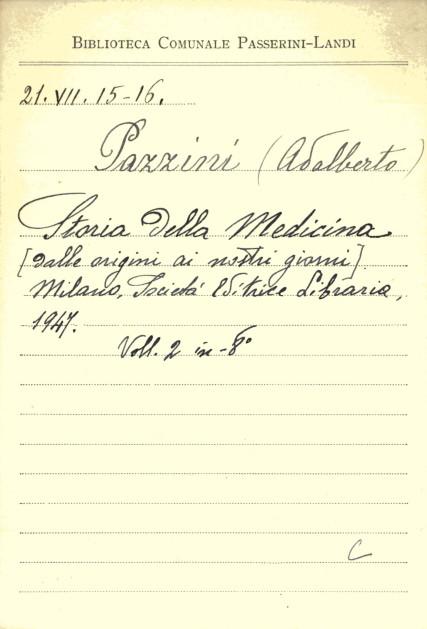 BIBLIOTECA COMUNALE PASSERINI-LANDI
21. VII. 15-16.
Pazzini (Adalberto)
Storia della Medicina
[dalle origini ai nostri giorni]
Milano, Società Editrice Libraria,
1947.
Voll. 2 in-8°
C